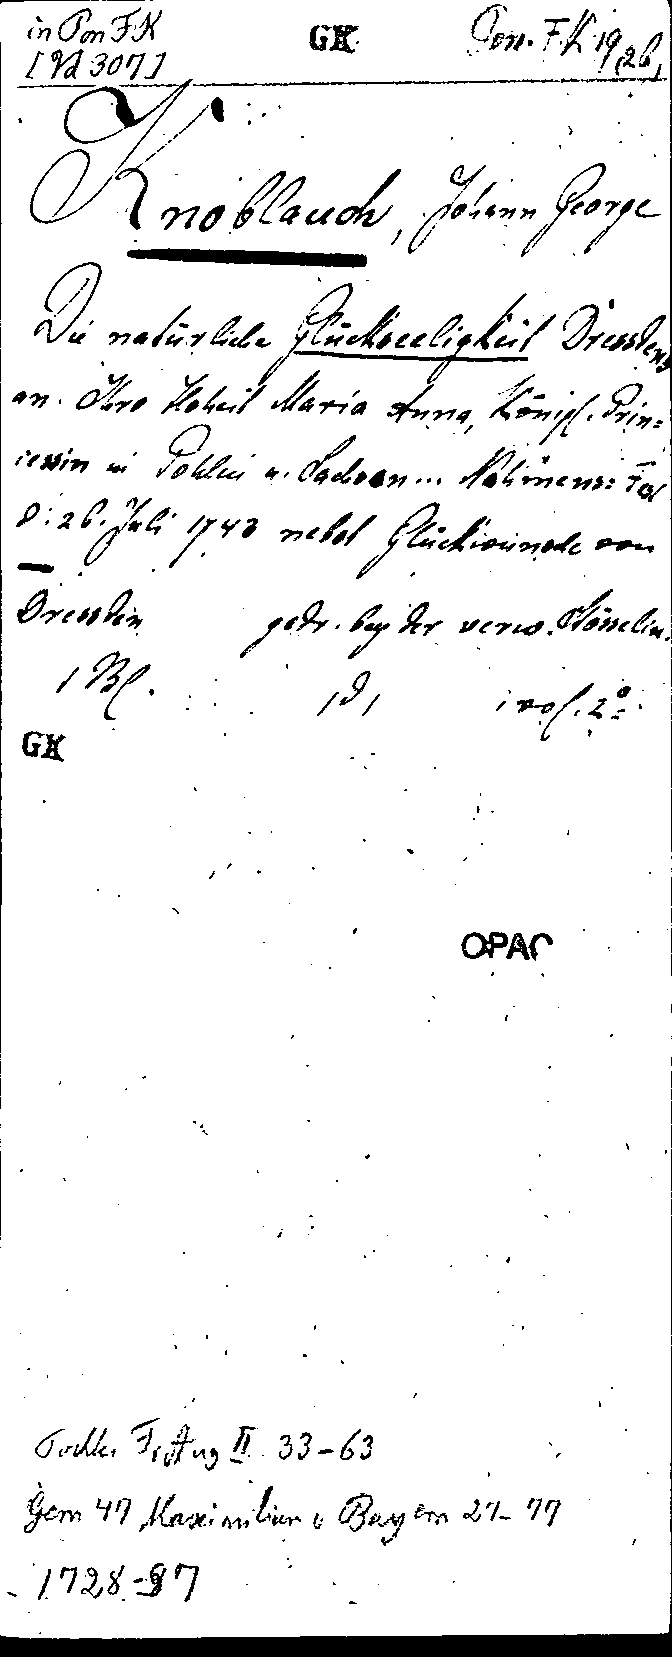 in Pon F.K GK Pon. F.K 19,26,
[Vd 307]
Knoblauch, Johann George
Die natürliche Glückseeligkeit Dressdens
an. Ihro Hoheit Maria Anna, Königl. Prin=
cessin in Pohlen u. Sachsen... Nahmens= Fest
d. 26. Juli 1743 nebst Glückwunsch von
Dressden gedr. bey der verw. Stösselin.
1 Bl.
GK
OPAC
Tochter Fr. Aug II 33-63
Gem 47 Maximilian v Bayern 27-77
1728-97